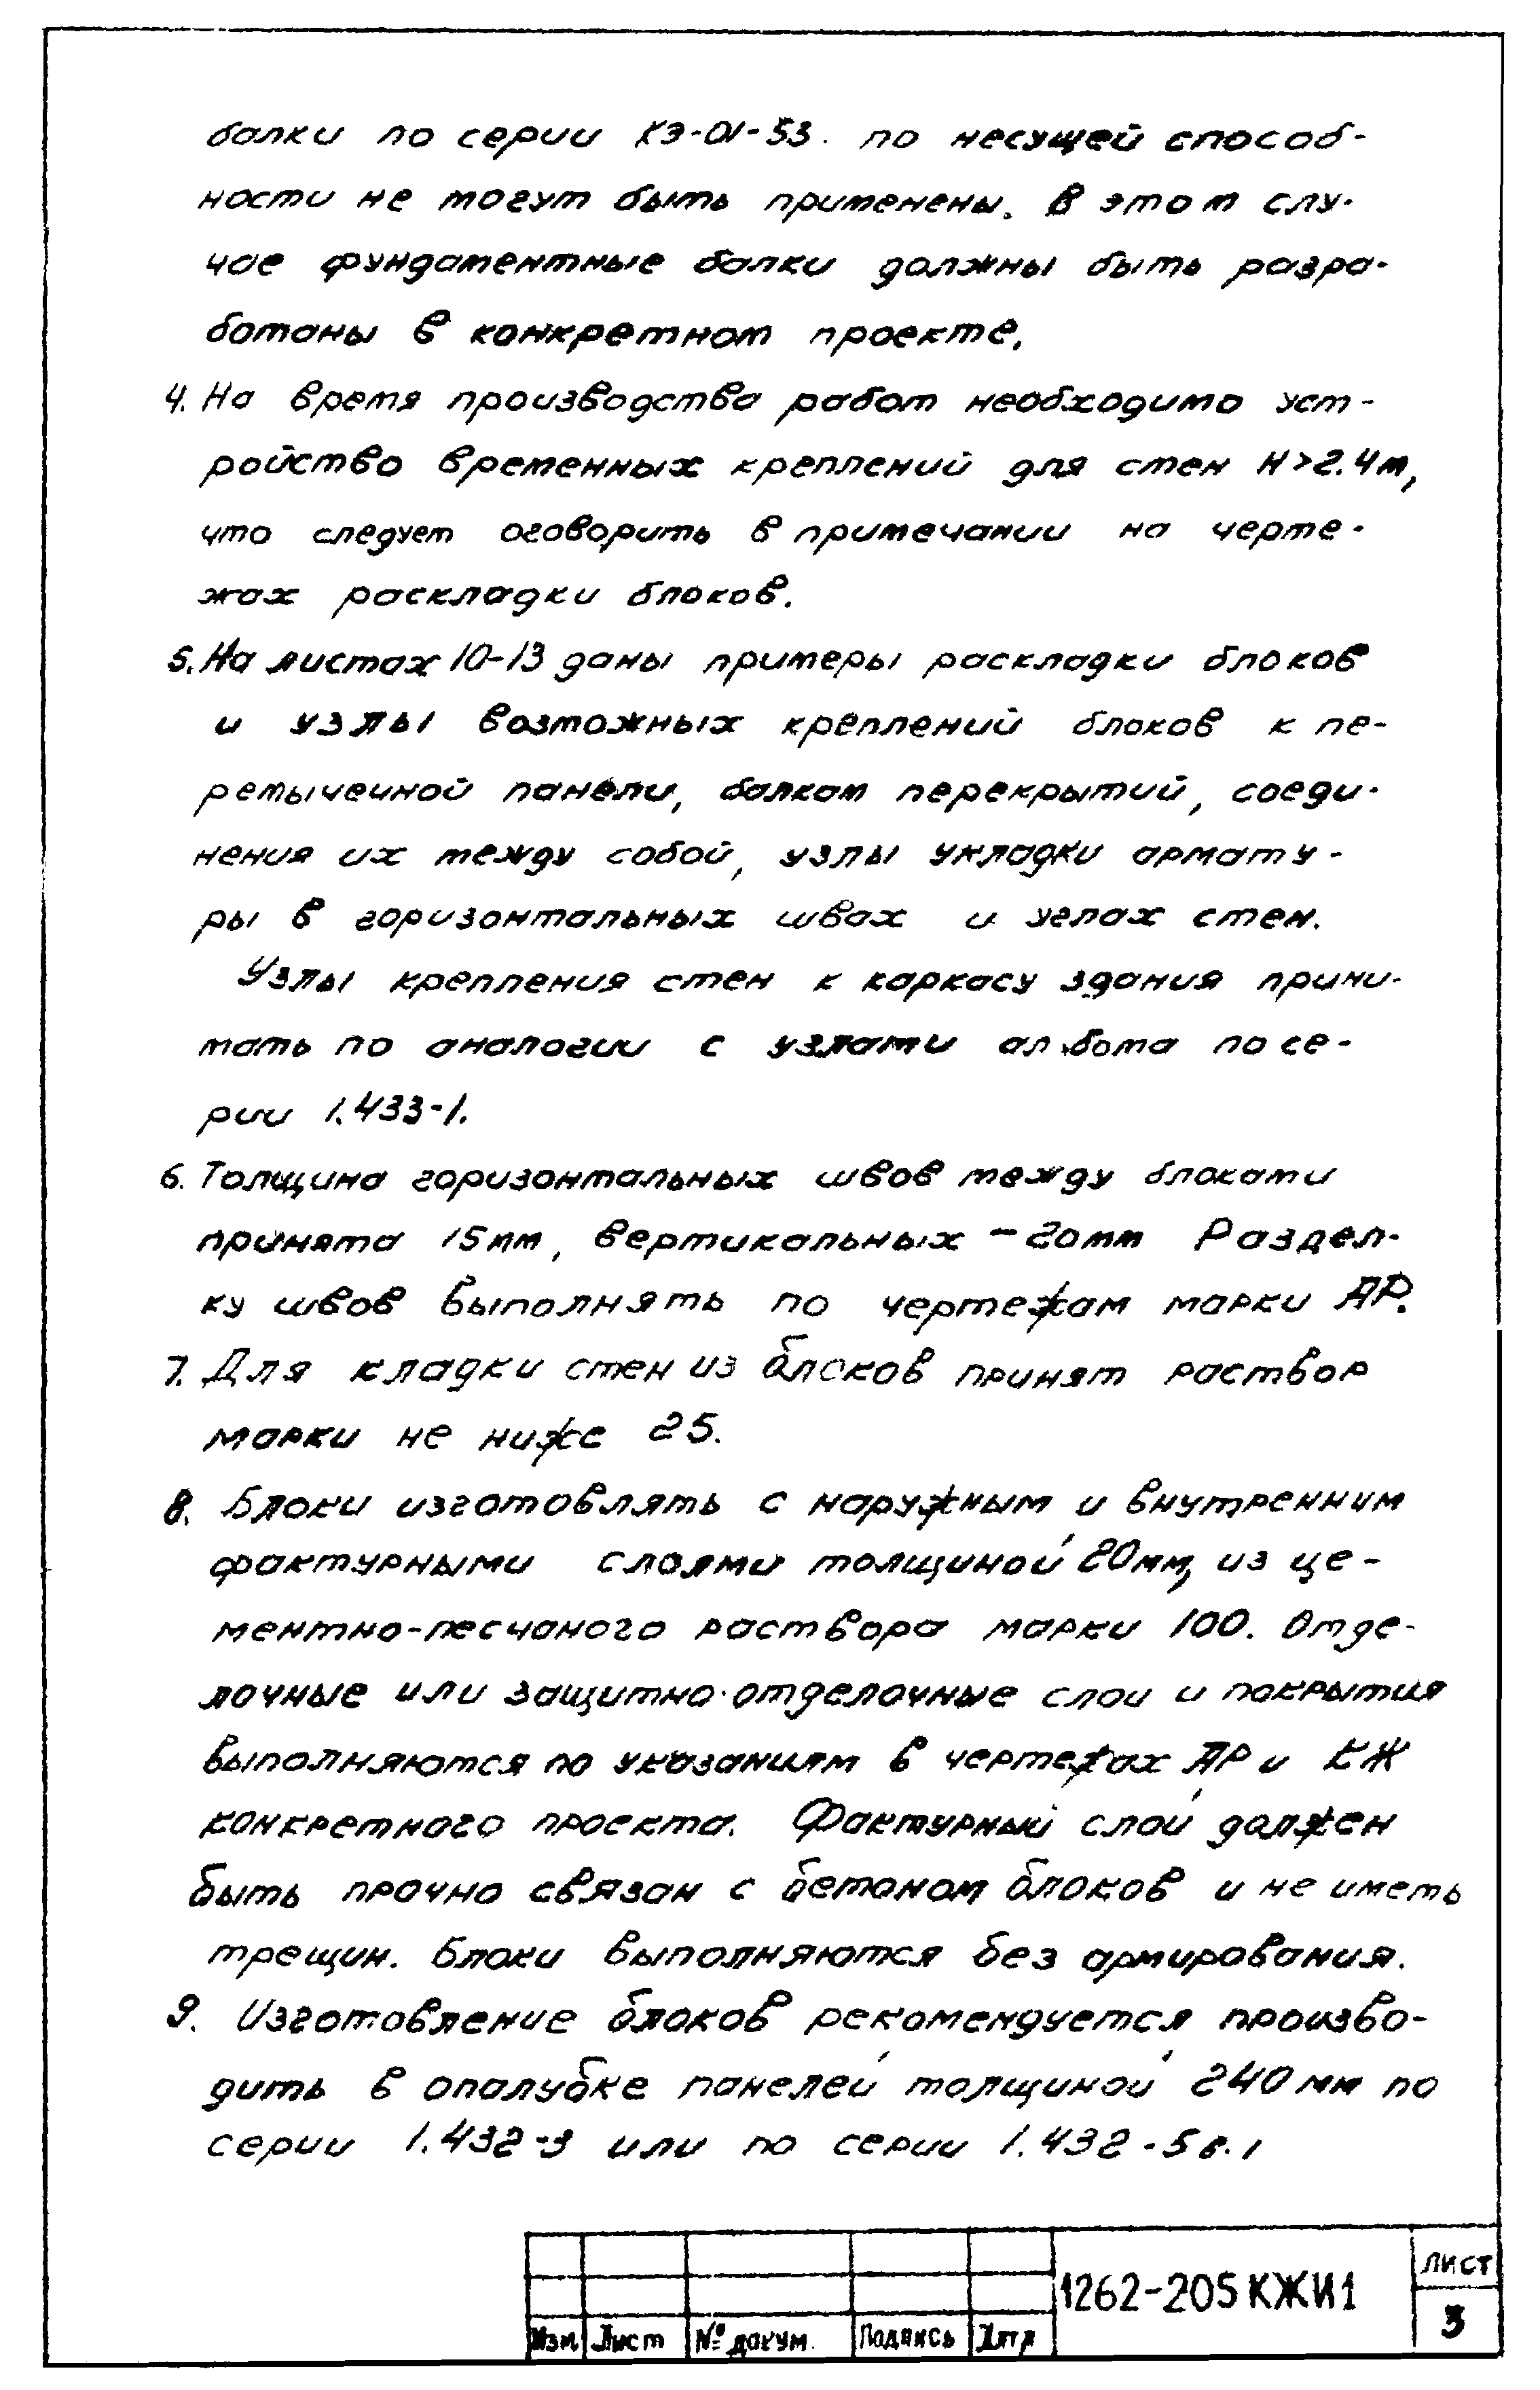 балки по серии КЭ-01-53. по несущей способ-
ности не могут быть применены. В этом слу-
чае фундаментные балки должны быть разра-
ботаны в конкретном проекте.
4. На время производства работ необходимо уст-
ройство временных креплений для стен Н>2.4м,
что следует оговорить в примечании на черте-
жах раскладки блоков.
5. На листах 10-13 даны примеры раскладки блоков
и узлы возможных креплений блоков к пе-
ремычечной панели, балкам перекрытий, соеди-
нения их между собой, узлы укладки армату-
ры в горизонтальных швах и углах стен.
Узлы крепления стен к каркасу здания прини-
мать по аналогии с узлами альбома по се-
рии 1.433-1.
6. Толщина горизонтальных швов между блоками
принята 15мм, вертикальных - 20мм Раздел-
ку швов выполнять по чертежам марки АР.
7. Для кладки стен из блоков принят раствор
марки не ниже 25.
8. Блоки изготовлять с наружным и внутренним
фактурными слоями толщиной 20мм, из це-
ментно-песчаного раствора марки 100. Отде-
лочные или защитно-отделочные слои и покрытия
выполняются по указаниям в чертежах АР и КЖ
конкретного проекта. Фактурный слой должен
быть прочно связан с бетоном блоков и не иметь
трещин. Блоки выполняются без армирования.
9. Изготовление блоков рекомендуется произво-
дить в опалубке панелей толщиной 240 мм по
серии 1.432-3 или по серии 1.432-5 в.1
1262-205 КЖИ1
Лист
3
Изм Лист № докум. Подпись Дата